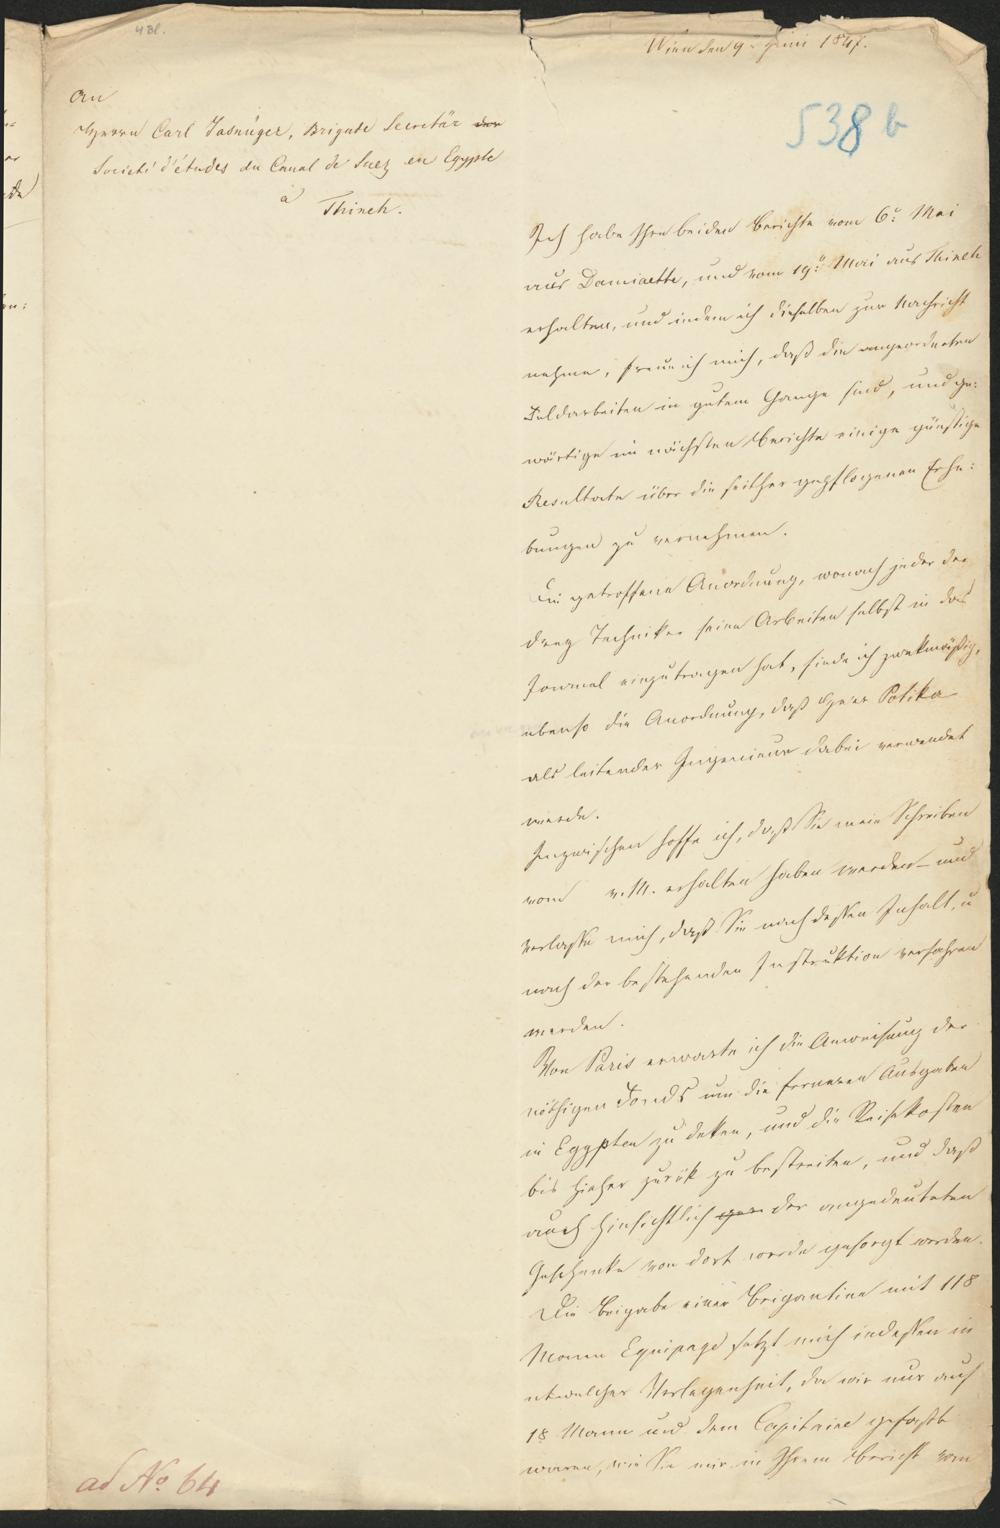 4 Bl.
Wien den 9. Juni 1847.
538 b
An
Herrn Carl Jasnüger, Brigade Secretär der
Societé d'études du Canal de Suez en Egypte
à
Thineh.
Ich habe Ihre beiden Berichte vom 6. Mai
aus Damiaette, und vom 19. Mai aus Thineh
erhalten, und indem ich dieselben zur Nachricht
nehme, freue ich mich, daß die angeordneten
Feldarbeiten in gutem Gange sind, und ge:
wärtige im nächsten Berichte einige günstige
Resultate über die seither gepflogenen Erhe:
bungen zu vernehmen.
Die getroffene Anordnung, wonach jeder der
drey Techniker seine Arbeiten selbst in das
Journal einzutragen hat, finde ich zwekmäßig,
ebenso die Anordnung, daß Herr Potika
als leitender Ingenieur dabei verwendet
werde.
Inzwischen hoffe ich, daß Sie mein Schreiben
vom v. M. erhalten haben werden und
verlasse mich, daß Sie nach dessen Inhalt, u
nach der bestehenden Instruktion verfahren
werden.
Von Paris erwarte ich die Anweisung der
nöthigen Fonds um die ferneren Ausgaben
in Egypten zu deken, und die Reisekosten
bis hieher zurük zu bestreiten, und daß
auch hinsichtlich der angedeuteten
Geschenke von dort werde gesorgt werden.
Die Beigabe einer Brigantine mit 118
Mann Equipage setzt mich indessen in
etwelcher Verlegenheit, da wir nur auf
18 Mann und dem Capitaine gefaßt
waren, wie Sie mir in Ihrem Bericht vom
ad No. 64